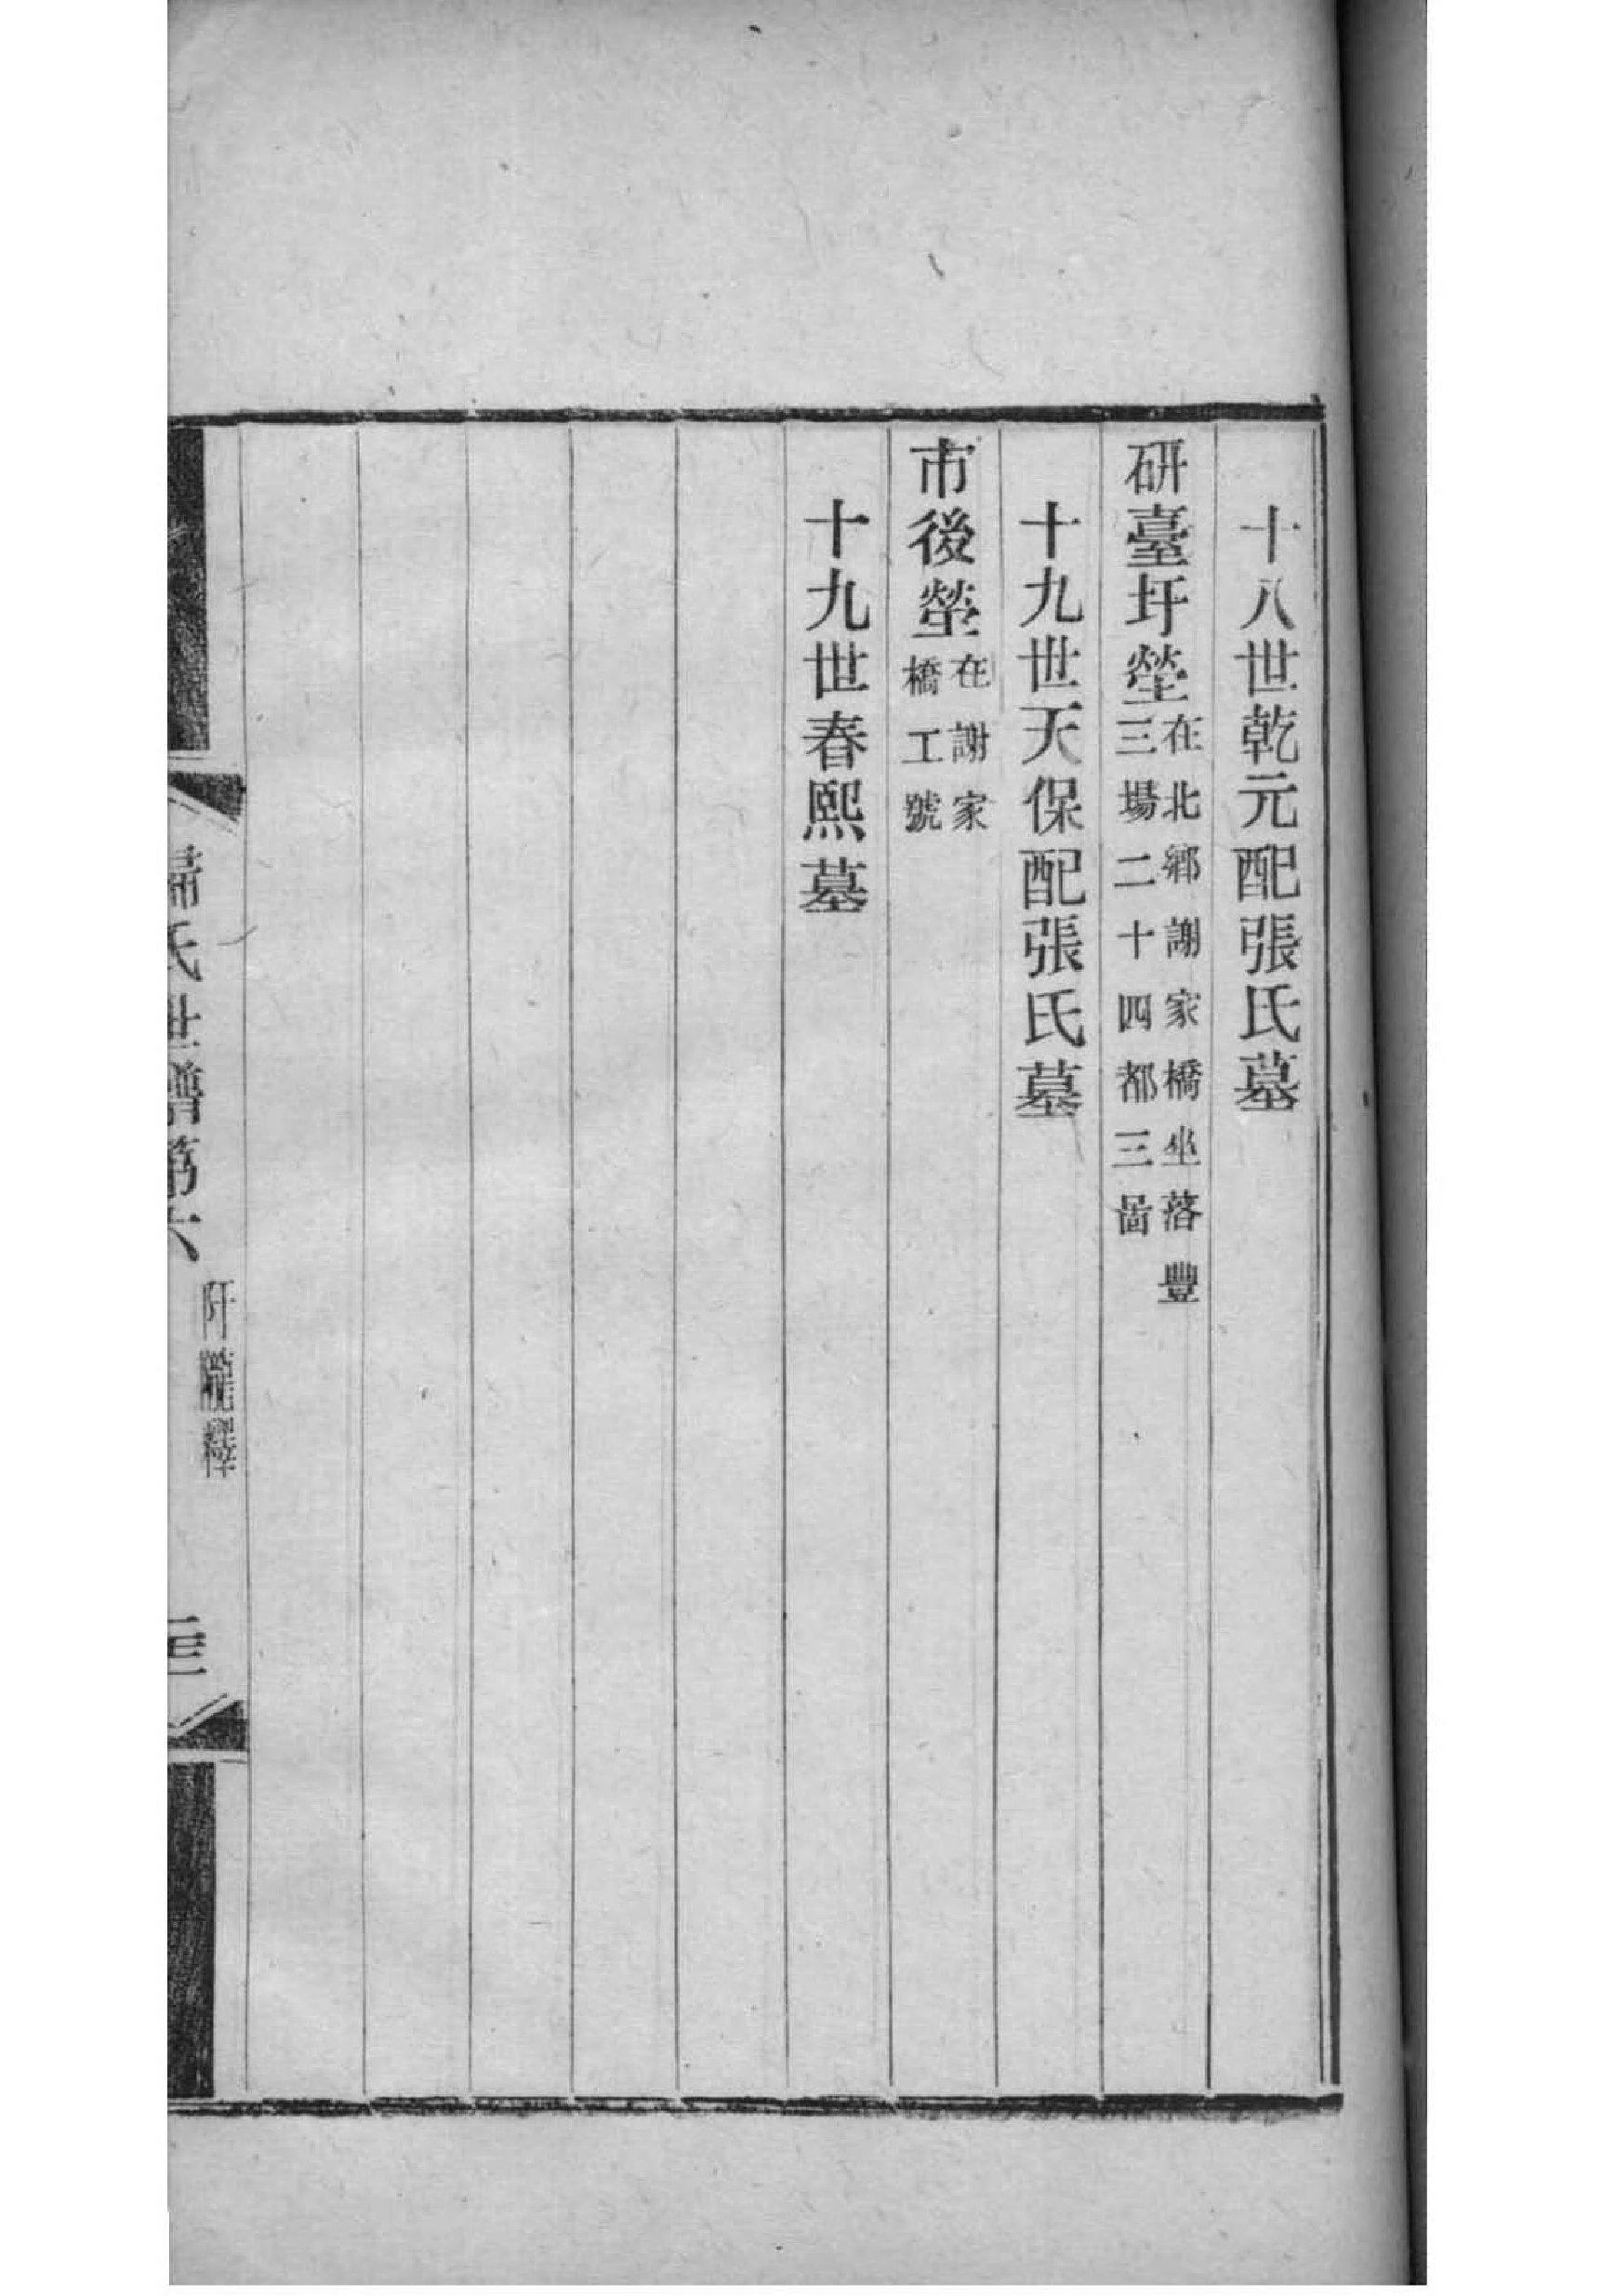 十八世乾元配張氏墓
研臺圩塋在北鄉謝家橋坐落豐三場二十四都三啚
十九世天保配張氏墓
市後塋在謝家橋工號
十九世春熙墓
歸氏世譜第六